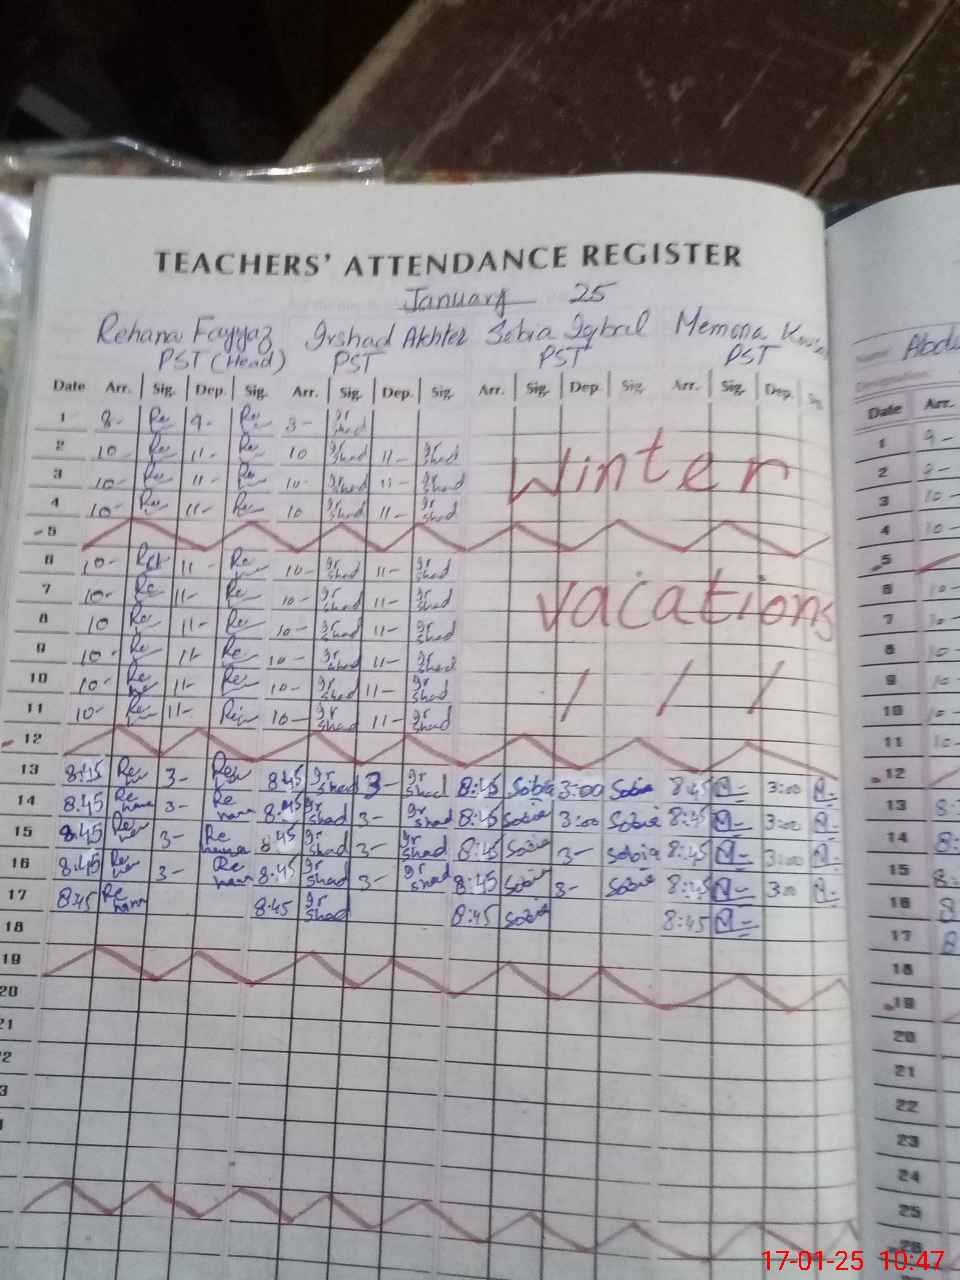 TEACHERS' ATTENDANCE REGISTER
January 25
Rehana Fayyaz Irshad Akhter Sobia Iqbal Memona
PST (Head) PST PST PST
Date Arr. Sig. Dep. Sig. Arr. Sig. Dep. Sig. Arr. Sig. Dep. Sig. Arr. Sig. Dep. Sig.
1 8- Re 9- Re Ir shad
2 10- Re 11- Re 10 Ir shad 11- Ir shad
3 10- Re 11- Re 10- Ir shad 11- Ir shad
4 10- Re 11- Re 10 Ir shad 11- Ir shad
Winter
5
6 10- 11- Re 10- Ir shad 11- Ir shad
7 10- Re 11- Re 10- Ir shad 11- Ir shad
vacations
8 10 Re 11- Re 10- Ir shad 11- Ir shad
9 10- Re 11- Re 10- Ir shad 11- Ir shad
10 10- Re 11- Re 10- Ir shad 11- Ir shad
11 10- Re 11- 10- Ir shad 11- Ir shad
12
13 8:45 Re 3- 8:45 Ir shad 3- Ir shad 8:45 Sobia 3:00 Sobia 8:45 3:00
14 8:45 Re hana 3- Re hana 8:45 Ir shad 3- Ir shad 8:45 Sobia 3:00 Sobia 8:45 3:00
15 8:45 3- Re hana 8:45 Ir shad 3- Ir shad 8:45 Sobia 3- Sobia 8:45 3:00
16 8:45 3- Re hana 8:45 Ir shad 3- Ir shad 8:45 Sobia 3- Sobia 8:45 3:00
17 8:45 Re hana 8:45 Ir shad 8:45 Sobia 8:45
18
19
20
21
Name: Abdu
Designation:
Date Arr.
1 9-
2 8-
3 10-
4 10-
5
6 10-
7 10-
8 10-
9 10-
10 10-
11 10-
12
13 8:
14 8:
15 8:
16 8
17 8
18
19
20
21
22
23
24
25
26
17-01-25 10:47